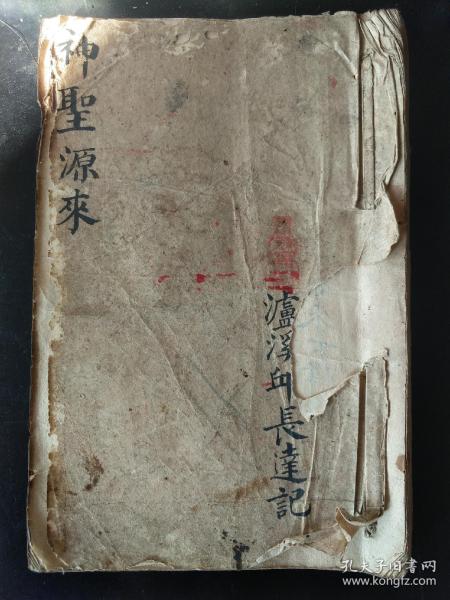 神聖源來
瀘溪邱長達記
孔夫子旧书网
www.kongfz.com